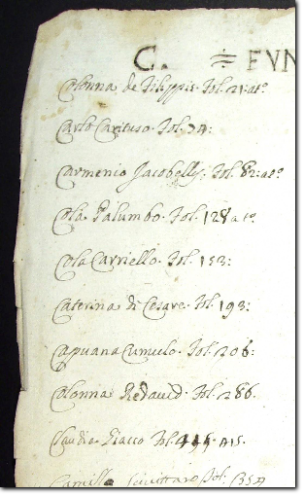 C. = FVN
Colonna de Filippis. fol. 21. at°
Carlo Carituso. fol. 34:
Carmenio Jacobellj: fol. 82: at°:
Cola Palumbo. fol. 128 a t°
Cola Carriello. fol. 153:
Caterina di Cesare. fol 193:
Capuana Cumulo. fol. 206:
Colonna Redavid. fol. 286.
Claudia fol.
Camilla fol: